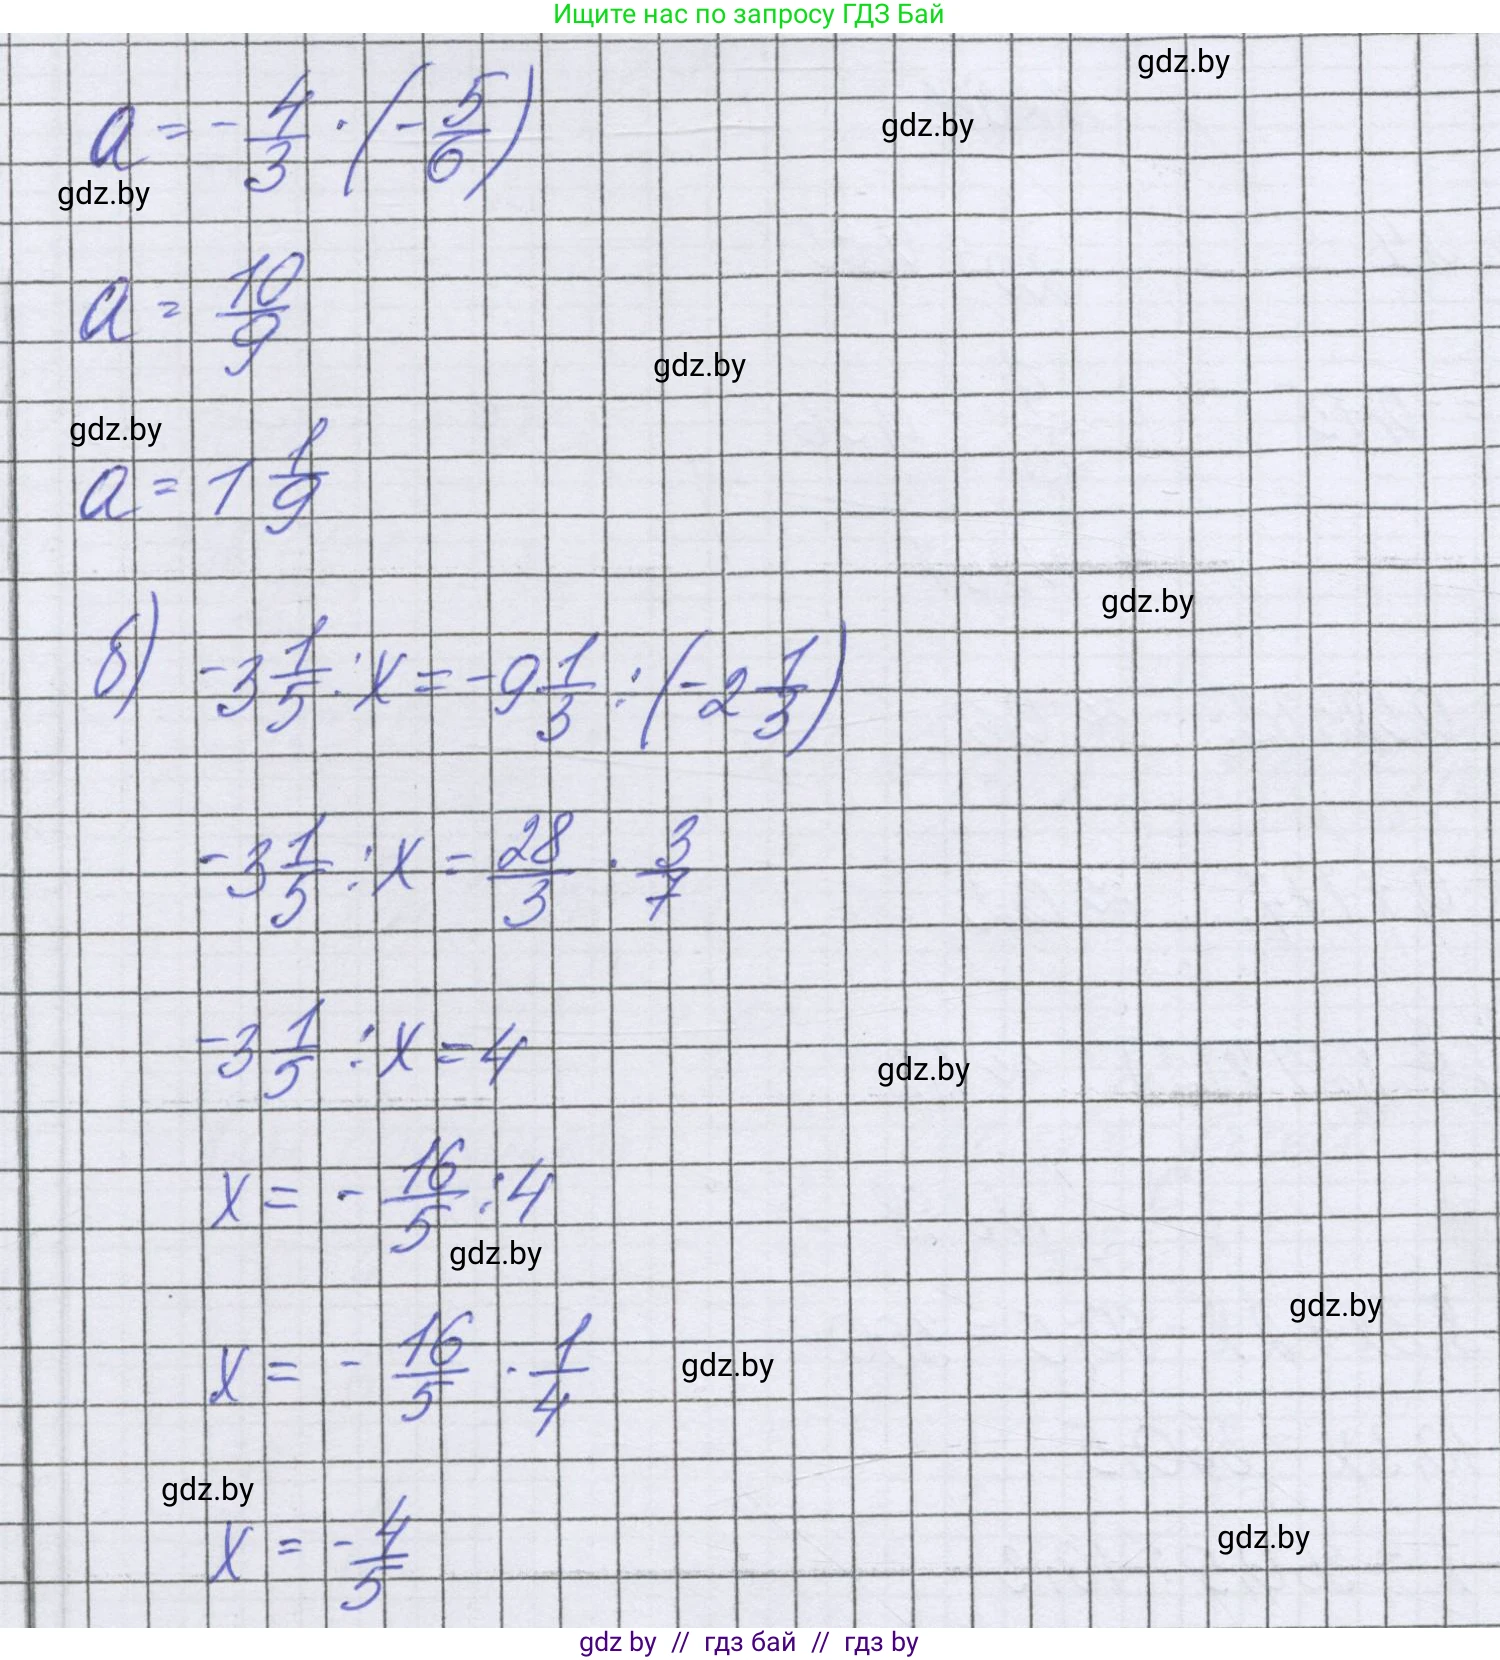 Ищите нас по запросу ГДЗ Бай
gdz.by
gdz.by
a = - 4/3 · (- 5/6)
gdz.by
a = 10/9
gdz.by
gdz.by
a = 1 1/9
gdz.by
б) -3 1/5 : x = -9 1/3 : (-2 1/3)
-3 1/5 : x = 28/3 · 3/7
-3 1/5 : x = 4
gdz.by
x = - 16/5 : 4
gdz.by
gdz.by
x = - 16/5 · 1/4
gdz.by
gdz.by
x = - 4/5
gdz.by
gdz by // гдз бай // гдз by